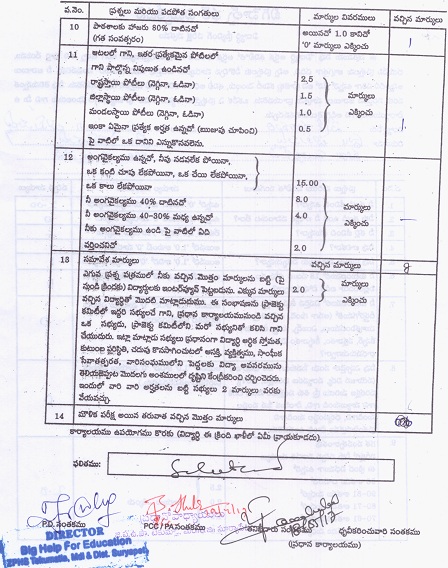 వ.నెం. ప్రశ్నలు మరియు పడపోత సంగతులు మార్కుల వివరములు వచ్చిన మార్కులు
10 పాఠశాలకు హాజరు 80% దాటినచో అయినచో 1.0 కానిచో 1
(గత సంవత్సరం) '0' మార్కులు ఎక్కించు
11 ఆటలలో గాని, ఇతర ప్రత్యేకమైన పోటీలలో
గాని పాల్గొన్న నిపుణత ఉండినచో
రాష్ట్రస్థాయి పోటీలు (నెగ్గినా, ఓడినా) 2.5
జిల్లాస్థాయి పోటీలు (నెగ్గినా, ఓడినా) 1.5 మార్కులు
మండలస్థాయి పోటీలు (నెగ్గినా, ఓడినా) 1.0 ఎక్కించు
ఇంకా ఏమైనా ప్రత్యేక అర్హత ఉన్నచో (ఋజువు చూపించి) 0.5
పై వాటిలో ఒక దానిని ఎన్నుకొనవలెను.
12 అంగవైకల్యము ఉన్నచో, నీవు నడవలేక పోయినా,
ఒక కంటి చూపు లేకపోయినా, ఒక చేయి లేకపోయినా,
ఒక కాలు లేకపోయినా 15.00
నీ అంగవైకల్యము 40% దాటినచో 8.0 మార్కులు
నీ అంగవైకల్యము 40-30% మధ్య ఉన్నచో 4.0 ఎక్కించు
నీకు అంగవైకల్యము ఉండి పై వాటిలో ఏది
వర్తించనిచో 2.0
13 సమావేశ మార్కులు వచ్చిన మార్కులు
ఎగువ ప్రశ్న పత్రములో నీకు వచ్చిన మొత్తం మార్కులను బట్టి (పై
నుండి క్రిందకు) విద్యార్థులకు ఇంటర్వ్యూన్ పెట్టబడును. ఎక్కువ మార్కులు 2.0 మార్కులు
వచ్చిన విద్యార్థితో మొదట మాట్లాడుదుము. ఈ సంభాషణను ప్రాజెక్టు ఎక్కించు
కమిటీలో ఇద్దరి సభ్యులచే గాని, ప్రధాన కార్యాలయమునుండి వచ్చిన
ఒక సభ్యుడు, ప్రాజెక్టు కమిటీలోని మరో సభ్యునితో కలిసి గాని
చేయుదురు. ఇట్లా మాట్లాడు సభ్యులు ప్రధానంగా విద్యార్థి ఆర్థిక స్తోమత,
కుటుంబ పరిస్థితి, చదువు కొనసాగించుటలో ఆసక్తి, వ్యక్తిత్వము, సాంఘిక
సేవాతత్పరత, వారిసంఘములోని పెద్దలకు విద్యా అవసరమును
తెలియజెప్పుట మొదలగు అంశములలో దృష్టిని కేంద్రీకరించి చర్చించెదరు.
ఇందులో వారి వారి అర్హతలను బట్టి సభ్యులు 2 మార్కులు వరకు
వేయవచ్చు.
14 మౌఖిక పరీక్ష అయిన తరువాత వచ్చిన మొత్తం మార్కులు
కార్యాలయము ఉపయోగము కొరకు (విద్యార్థి ఈ క్రింది ఖాళీలో ఏమీ వ్రాయకూడదు).
ఫలితము: Selected
P.D. సంతకము PCC / PA సంతకము తనిఖీదారు సంతకము ధృవీకరించువారి సంతకము
(ప్రధాన కార్యాలయము)
DIRECTOR
Big Help For Education